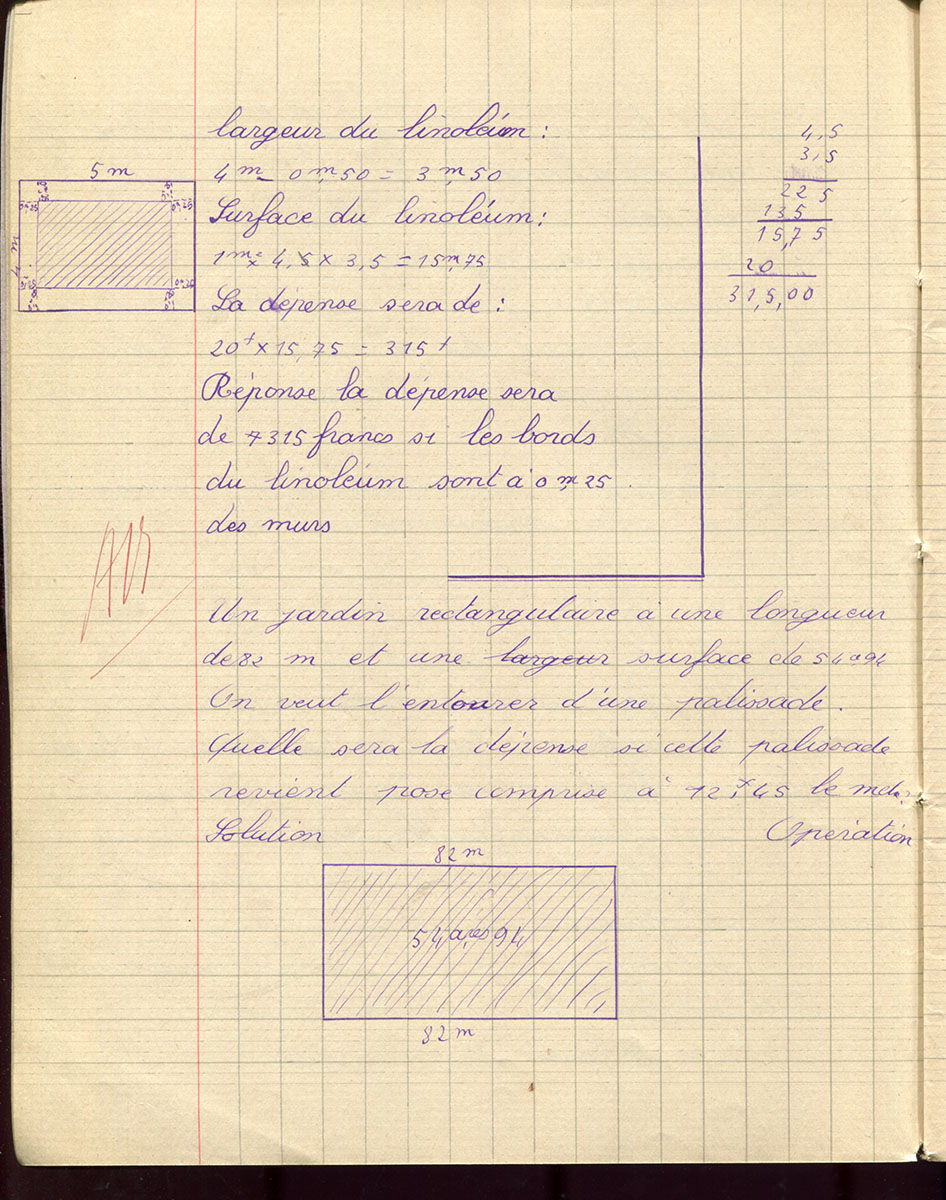 largeur du linoléum :
4 m - 0 m,50 = 3 m,50
5 m
4 m
Surface du linoléum :
1 m² x 4,5 x 3,5 = 15 m²,75
La dépense sera de :
20 f x 15,75 = 315 f
Réponse la dépense sera
de 315 francs si les bords
du linoléum sont à 0 m,25
des murs
4,5
3,5
22 5
13 5
15,75
20
31,5,00
Un jardin rectangulaire a une longueur
de 82 m et une largeur surface de 54 a 94
On veut l'entourer d'une palissade.
Quelle sera la dépense si cette palissade
revient pose comprise à 12 f,45 le mètre
Solution Opération
82 m
54 ares 94
82 m